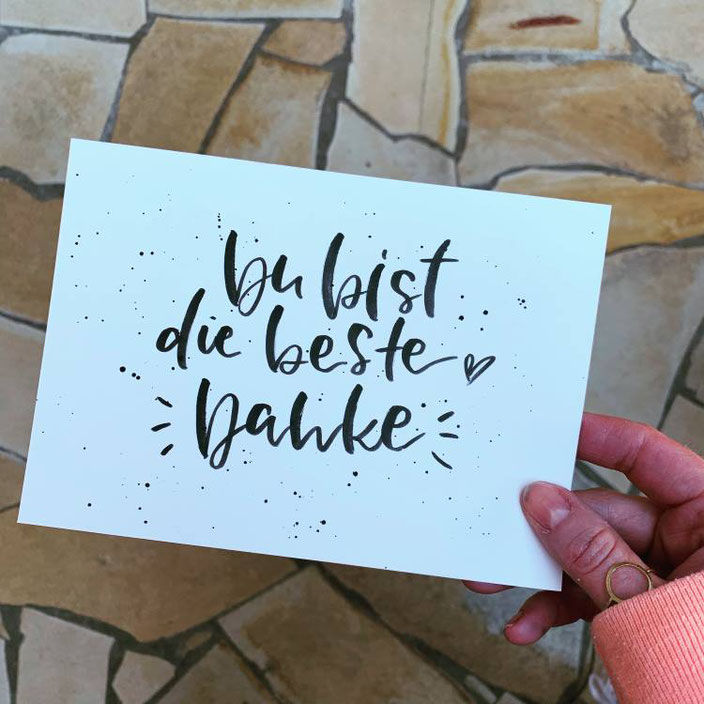 Du bist
die beste
Danke